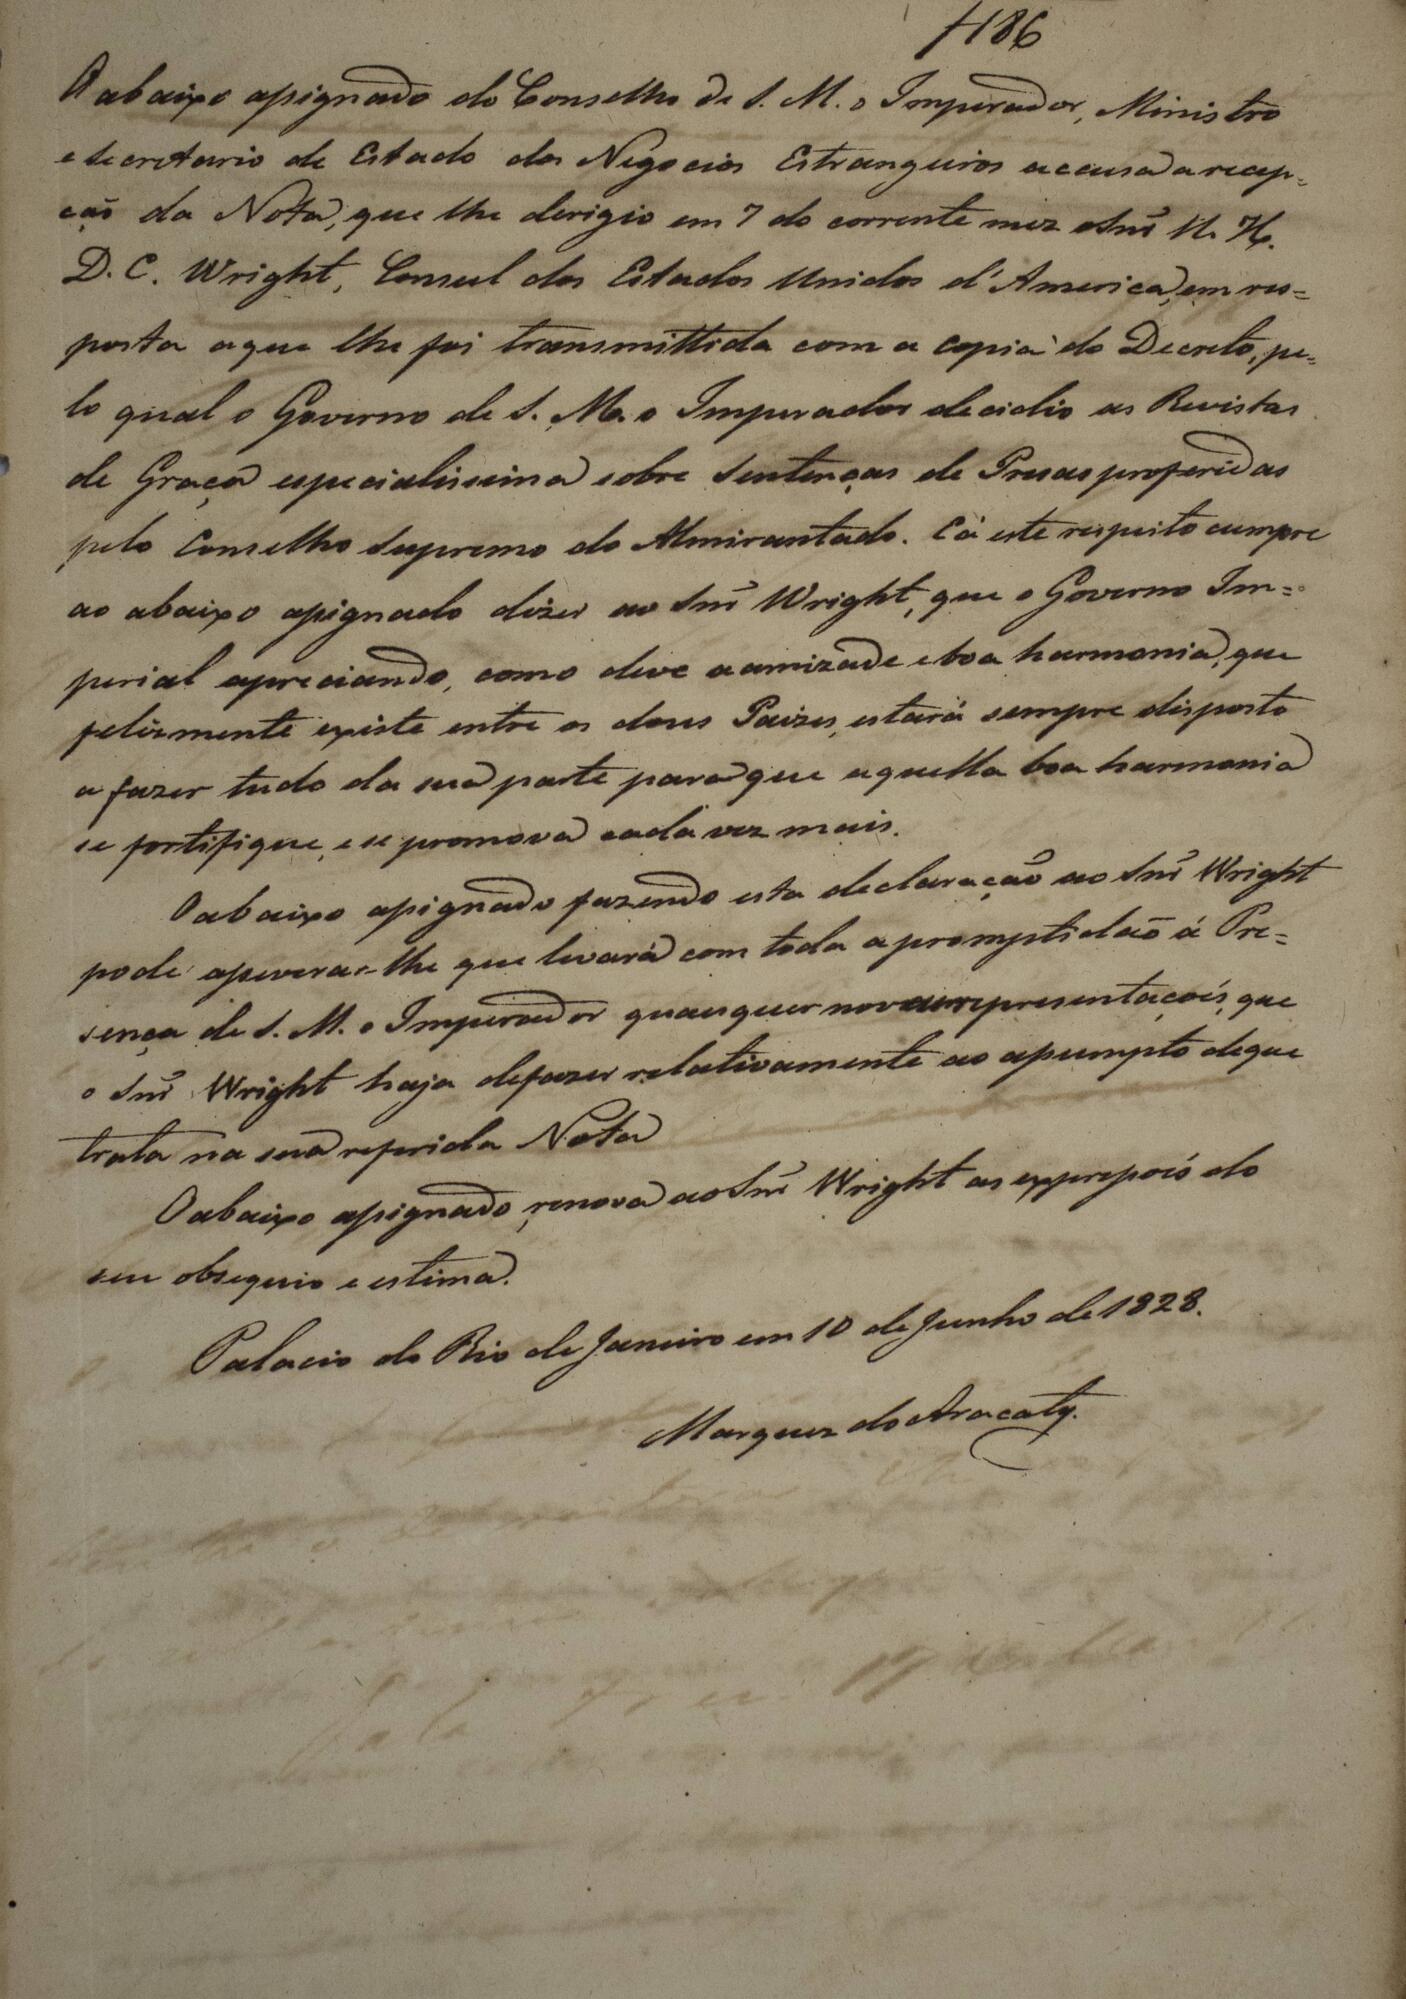 H86
O abaixo assignado do Conselho de S. M. o Imperador, Ministro
e Secretario de Estado dos Negocios Estrangeiros accusa a recep=
ção da Nota, que lhe derigio em 7 do corrente mez o Snr̃
D. C. Wright, Consul dos Estados Unidos d'America, em res=
posta a que lhe foi transmittida com a copia do Decreto, pe=
lo qual o Governo de S. M. o Imperador decidio as Revistas
de Graça especialissima sobre Sentenças de Presas proferidas
pelo Conselho Supremo do Almirantado. E á este respeito cumpre
ao abaixo assignado dizer ao Snr̃ Wright, que o Governo Im=
perial apreciando, como deve a amizade e boa harmonia, que
felizmente existe entre os dous Paizes, estará sempre disposto
a fazer tudo da sua parte para que aquella boa harmonia
se fortifique, e se promova cada vez mais.
O abaixo assignado fazendo esta declaração ao Snr̃ Wright
pode asseverar-lhe que levará com toda a promptidão á Pre=
sença de S. M. o Imperador quaesquer novas representações, que
o Snr̃ Wright haja de fazer relativamente ao assumpto de que
trata na sua referida Nota
O abaixo assignado, renova ao Snr̃ Wright as expressoẽs do
seu obsequio e estima.
Palacio do Rio de Janeiro em 10 de Junho de 1828.
Marquez do Aracaty.